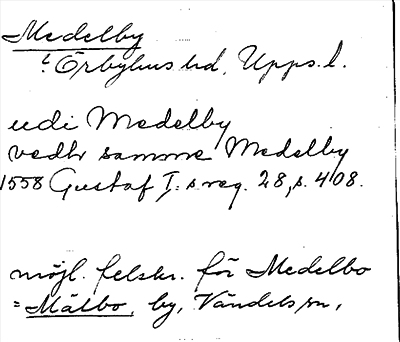 Medelby
t Örbyhus hd, Upps. l.
udi Medelby
vedh samme Medelby
1558 Gustaf I:s reg. 28, s. 408.
möjl. felskr. för Medelbo
= Mälbo, by, Vändels sn,